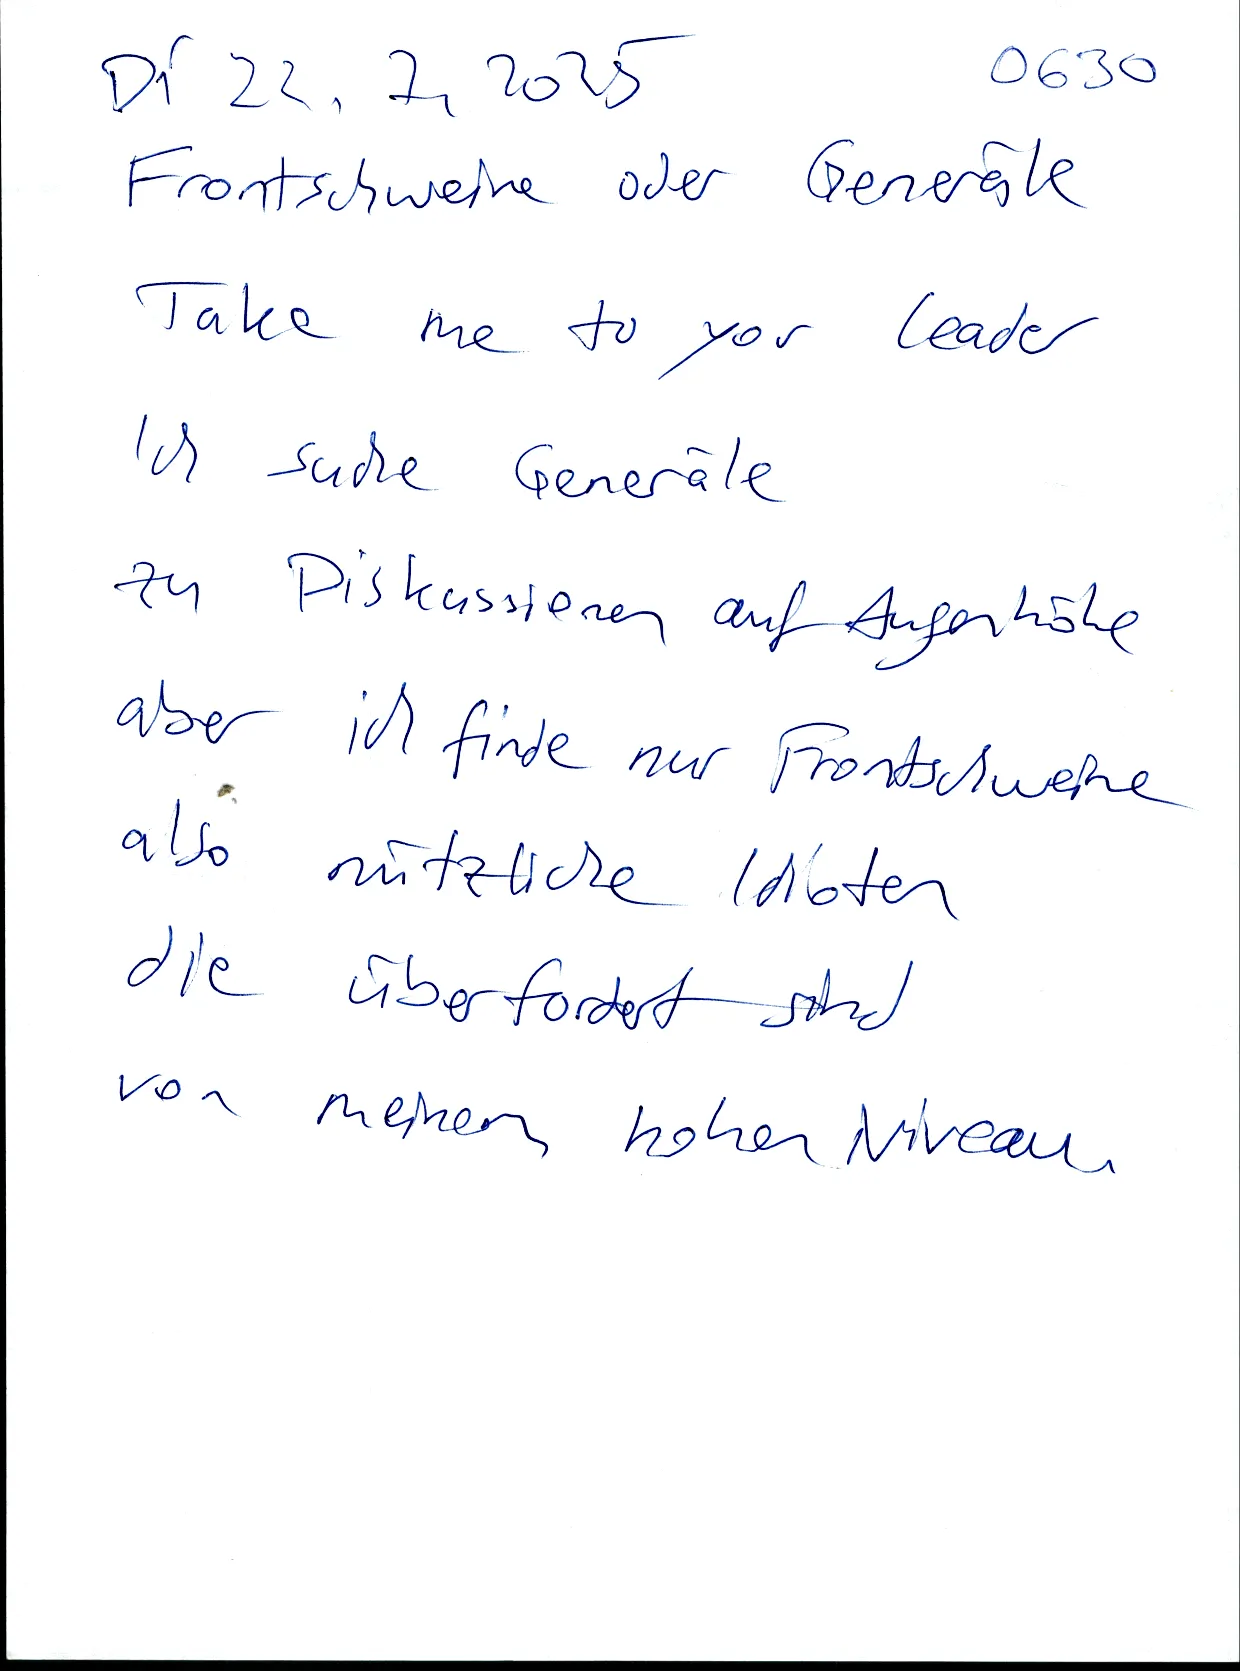 Di 22. 7. 2025 0630
Frontschweine oder Generäle
Take me to yor leader
Ich suche Generäle
zu Diskussieren auf Augenhöhe
aber ich finde nur Frontschweine
also nützliche Idioten
die überfordert sind
von meinem hohen Niveau.